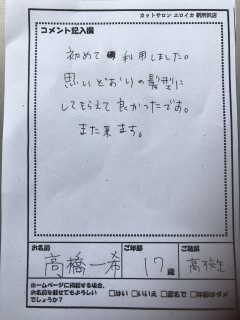 カットサロン エロイカ 新所沢店
コメント記入欄
初めて利用しました。
思いどおりの髪型に
してもらえて良かったです。
また来ます。
お名前
ご年齢
ご職業
高橋一希
17歳
高校生
ホームページに掲載する場合、
お名前を載せてもよろしい
でしょうか?
□はい □いいえ □匿名で □年齢のみ